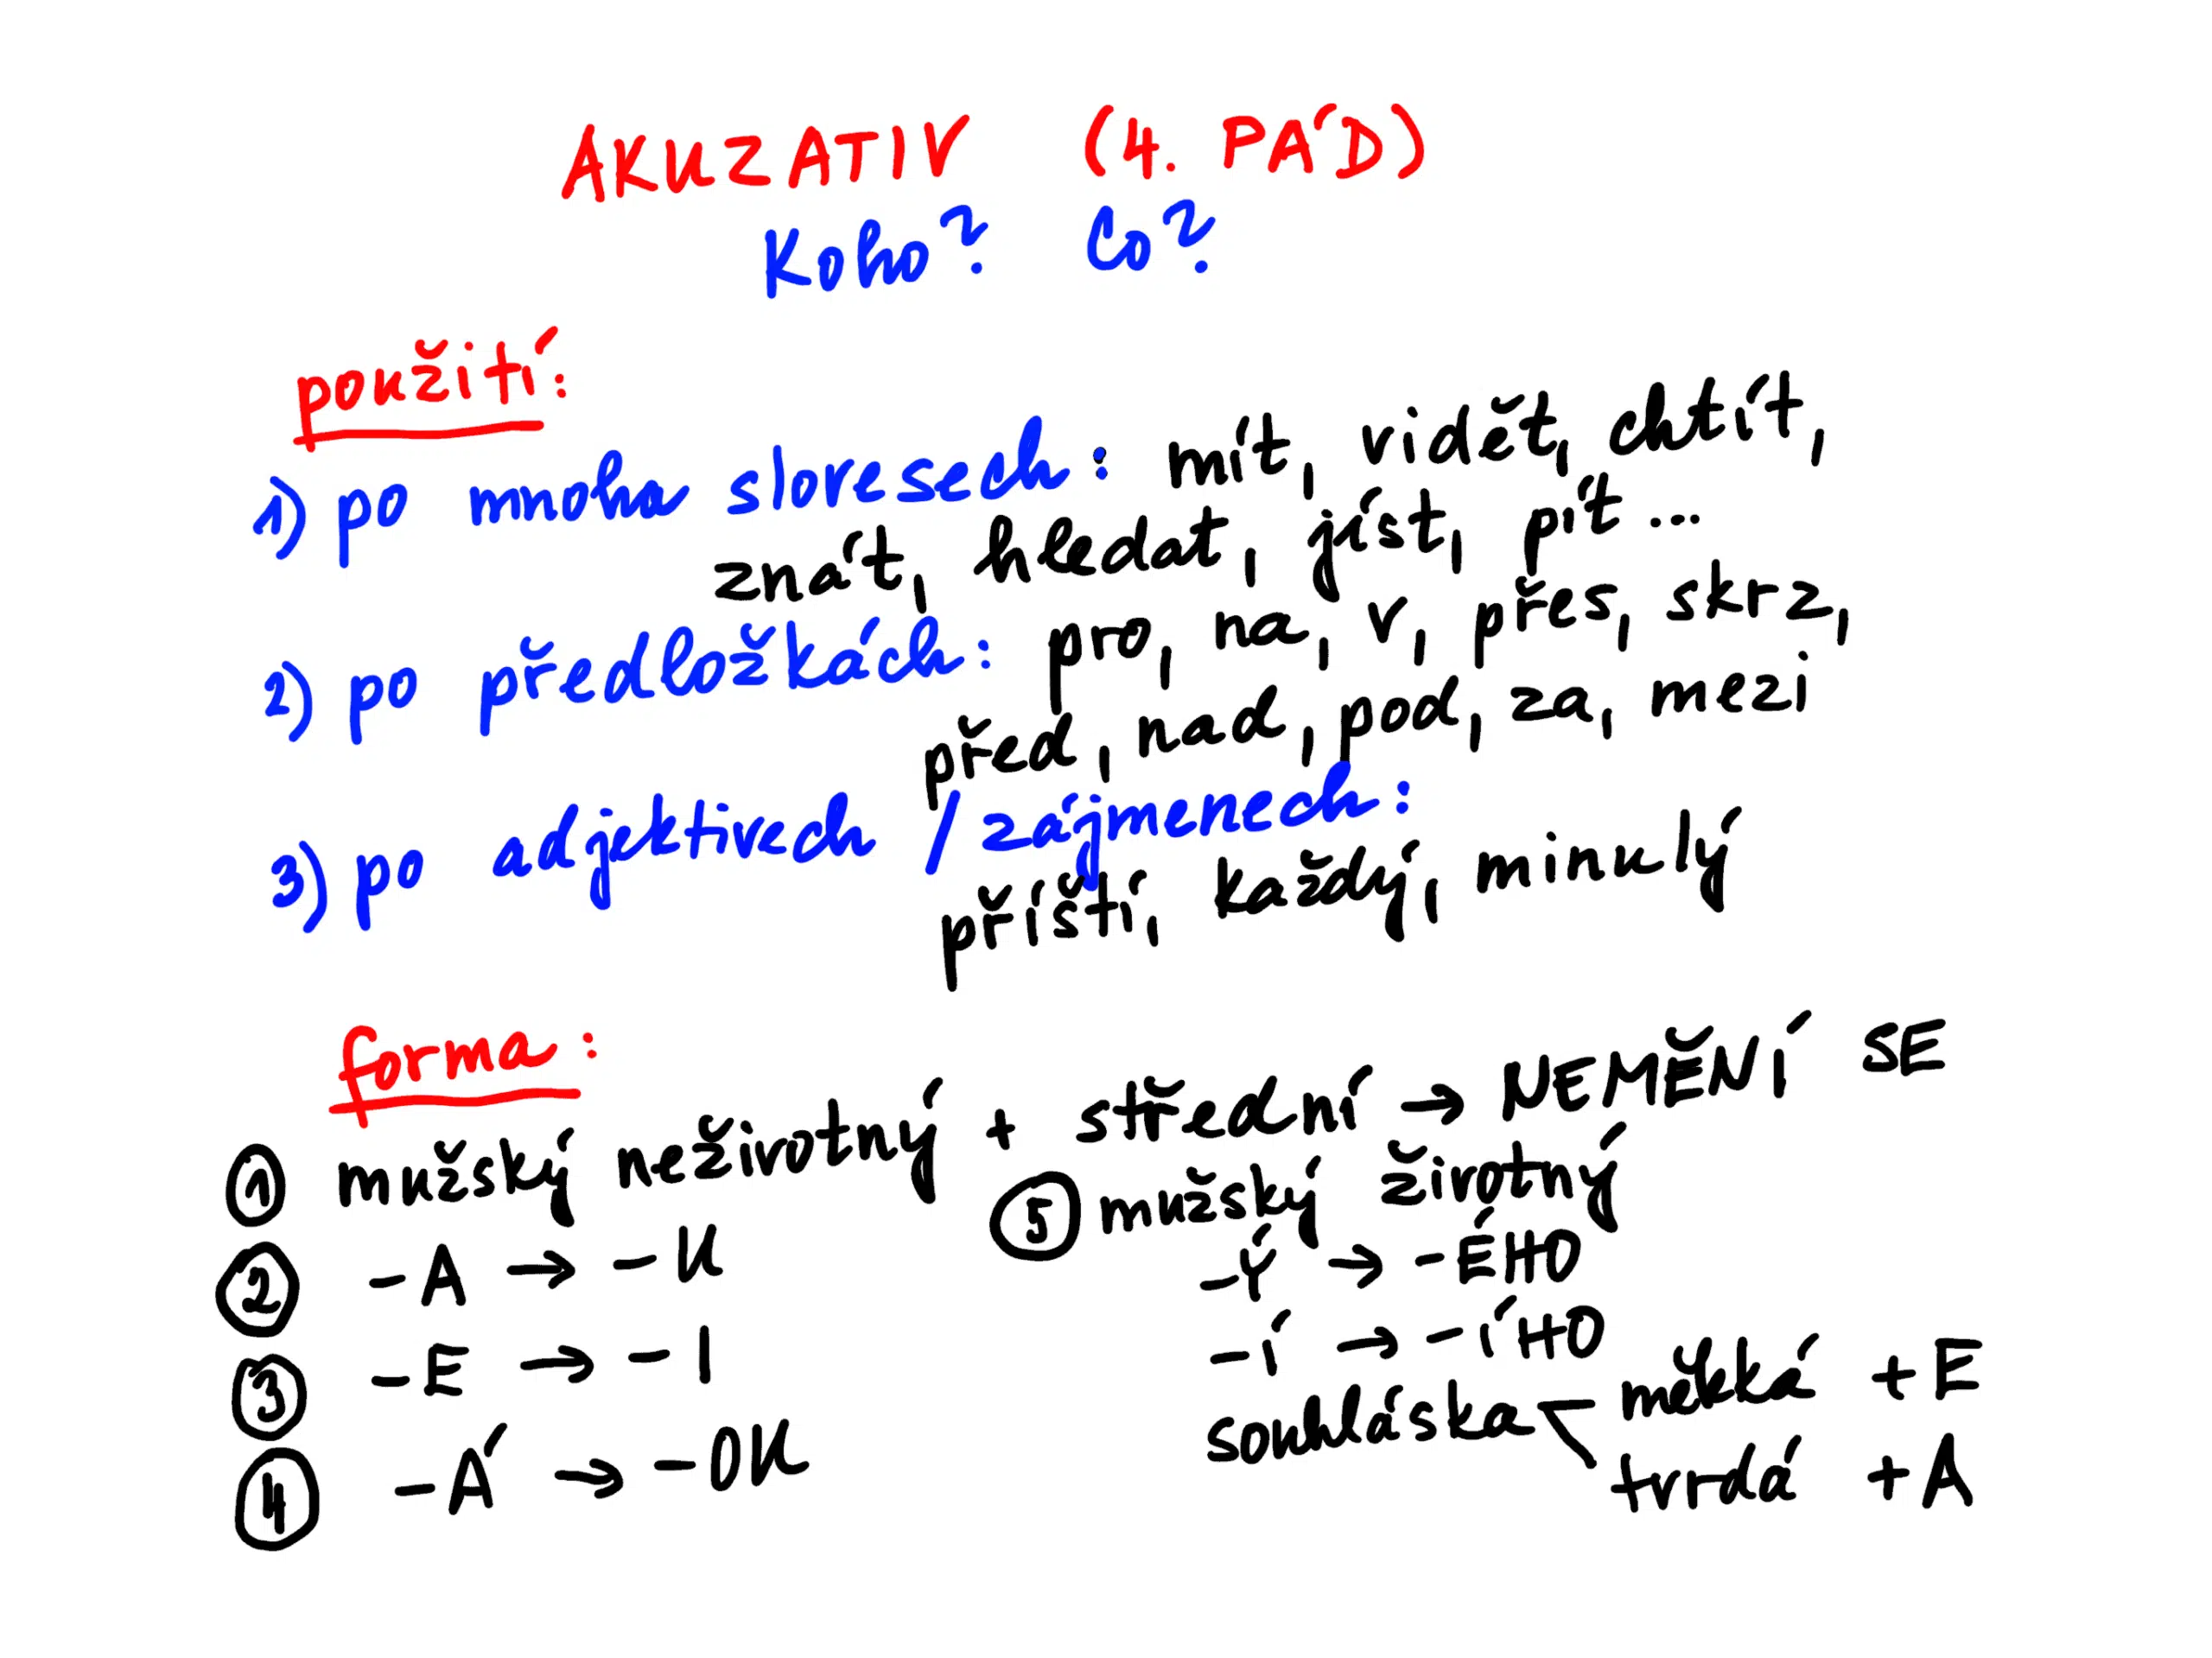 AKUZATIV (4. PÁD)
Koho? Co?
použití:
1) po mnoha slovesech: mít, vidět, chtít,
znát, hledat, jíst, pít...
2) po předložkách: pro, na, v, přes, skrz,
před, nad, pod, za, mezi
3) po adjektivech / zájmenech:
příští, každý, minulý
forma:
① mužský neživotný + střední → NEMĚNÍ SE
② -A → -U
③ -E → -I
④ -Á → -OU
⑤ mužský životný
-Ý → -ÉHO
-Í → -ÍHO
souhláska < měkká +E
tvrdá +A